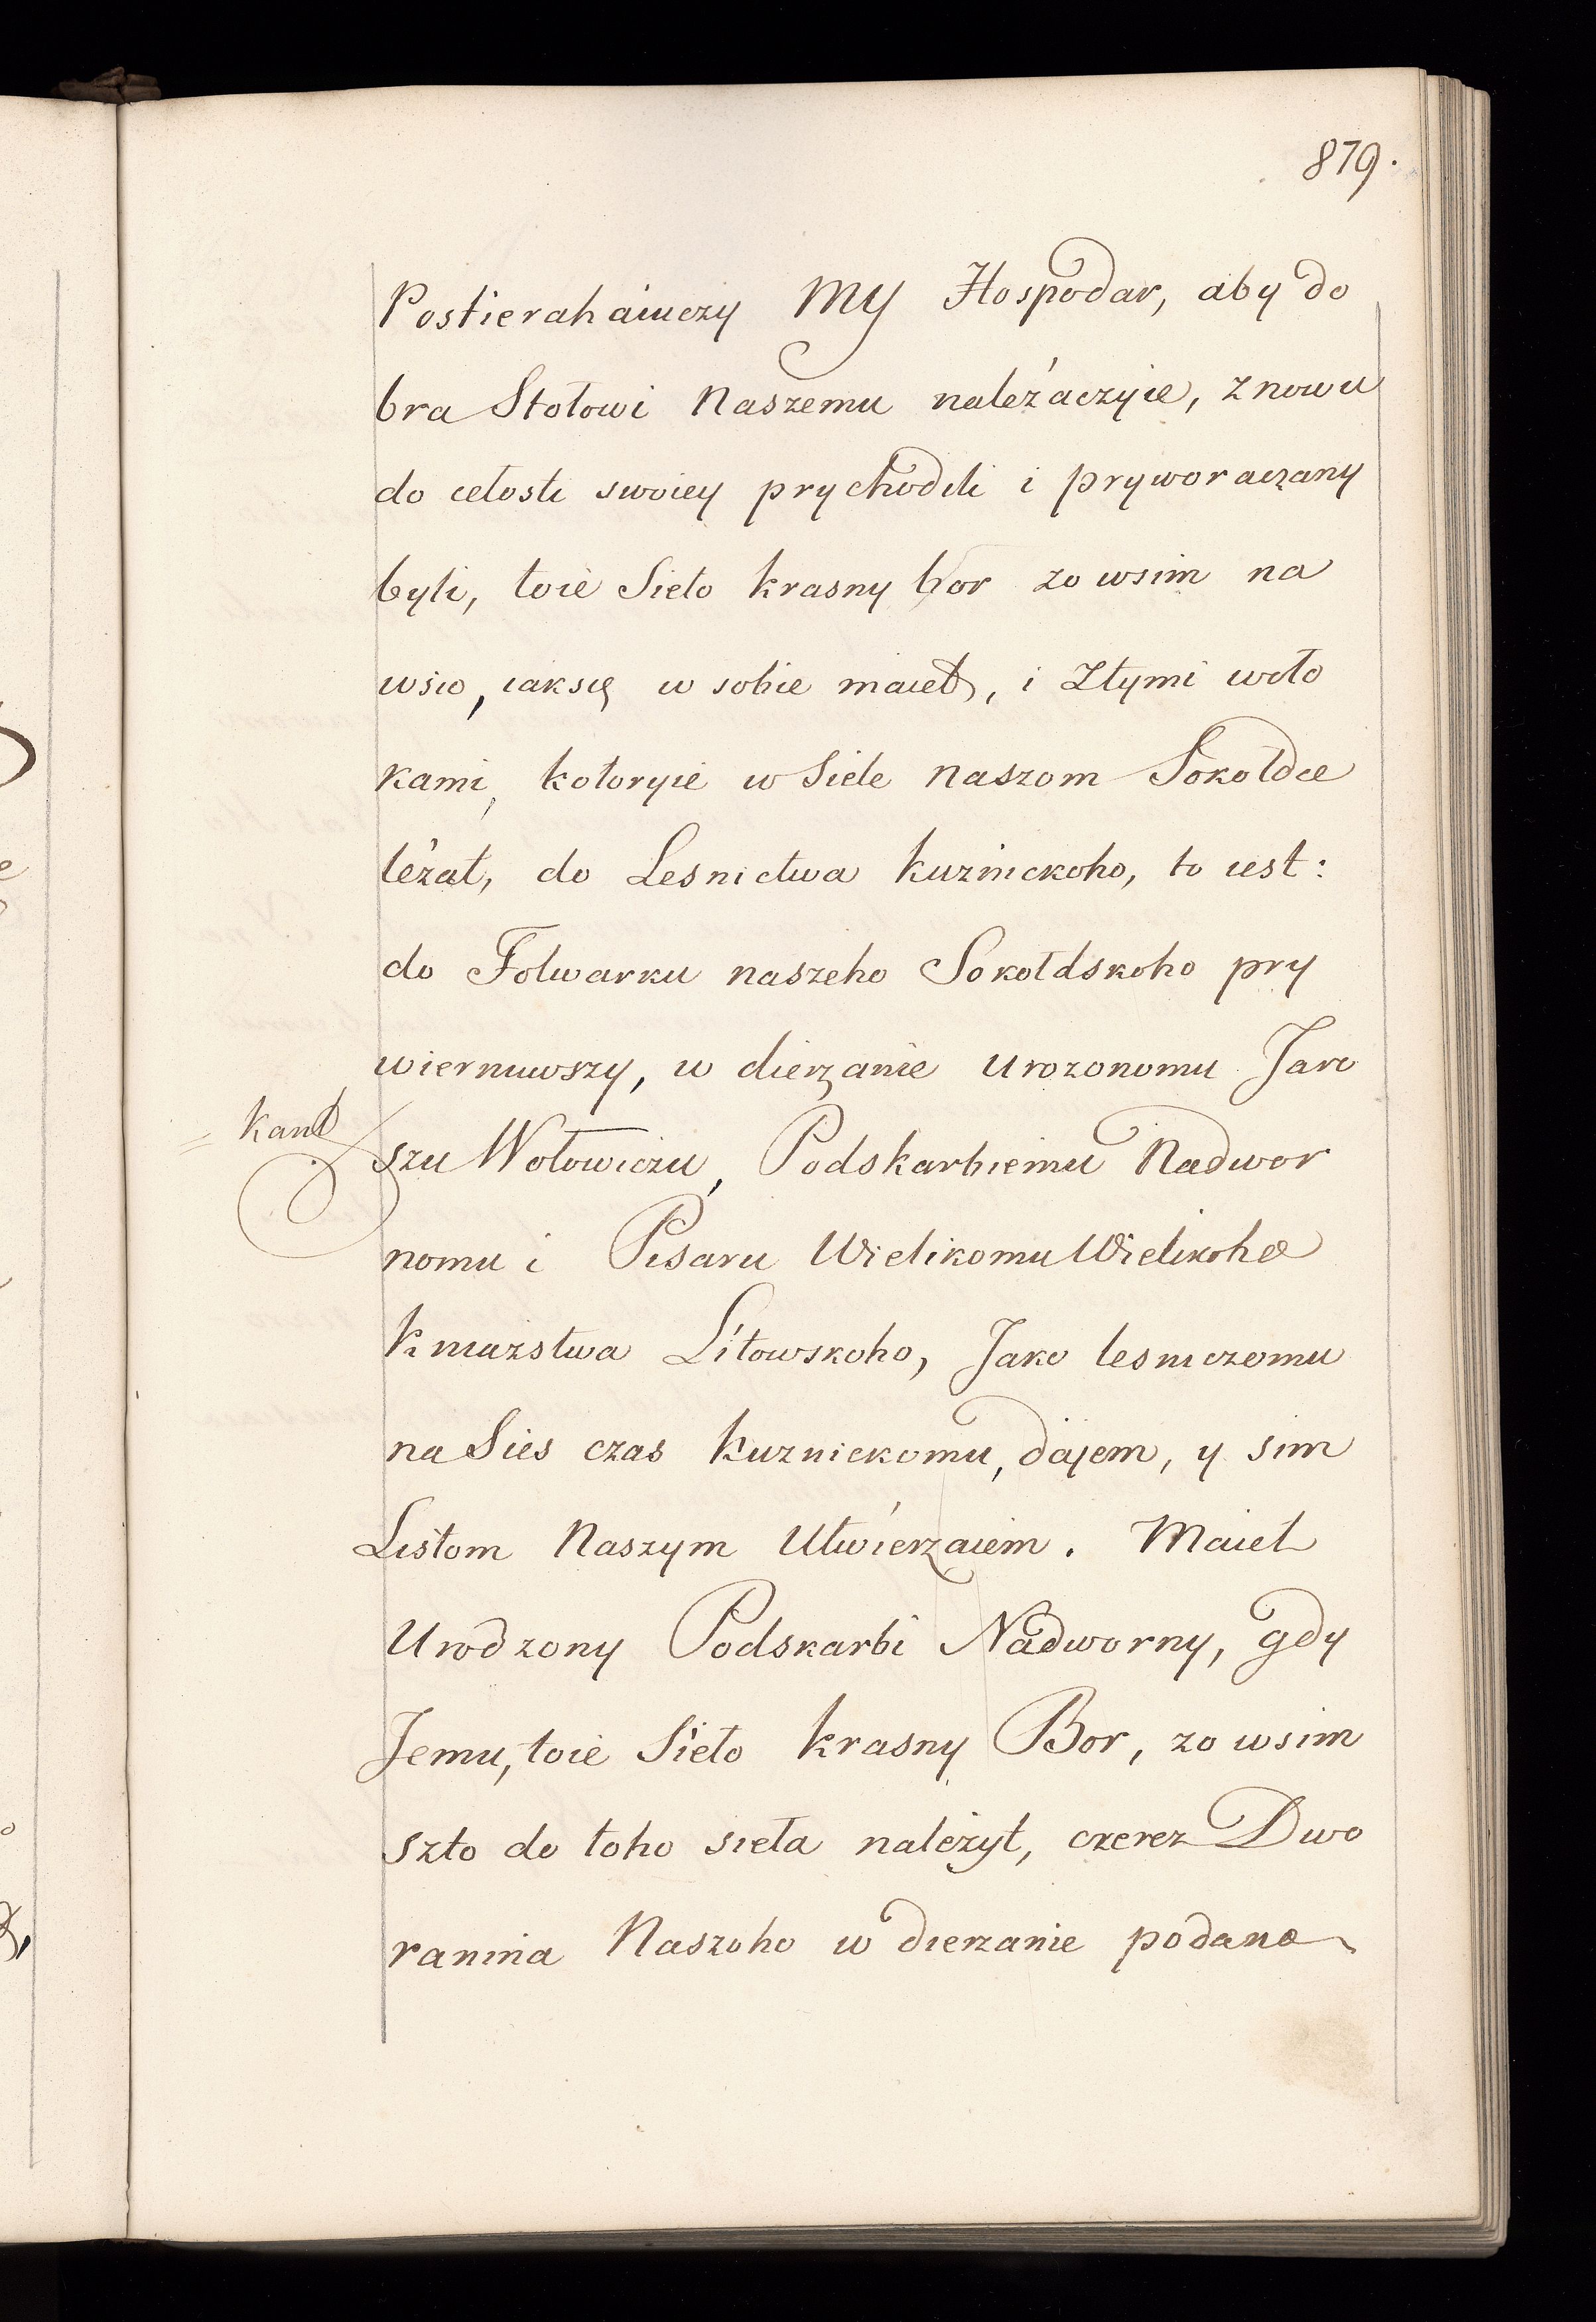 879.
Postierahaiuczy MY Hospodar, aby do
bra Stołowi Naszemu należaczyie, znowu
do cełosti swoiey prychodili i pryworaczany
byli, toie Sieło krasny bor zo wsim na
wsio, iaksię w sobie maiet, i ztymi woło
kami, kotoryie w Siele naszom Sokołdce
leżat, do Lesnictwa kuznickoho, to iest:
do Folwarku naszeho Sokołdskoho pry
wiernuwszy, w dierzanie urozonomu Jaro
Kant
szu Wołowiczu, Podskarbiemu Nadwor
nomu i Pisaru Wielikomu Wielikoho
Kniazstwa Litowskoho, Jako lesniczomu
na Sies czas kuznickomu, dajem, y sim
Listom Naszym Utwierzaiem. Maiet
Urodzony Podskarbi Nadworny, gdy
Jemu, toie Sieło krasny Bor, zo wsim
szto do toho sieła należyt, czerez Dwo
ranina Naszoho w dierzanie podano